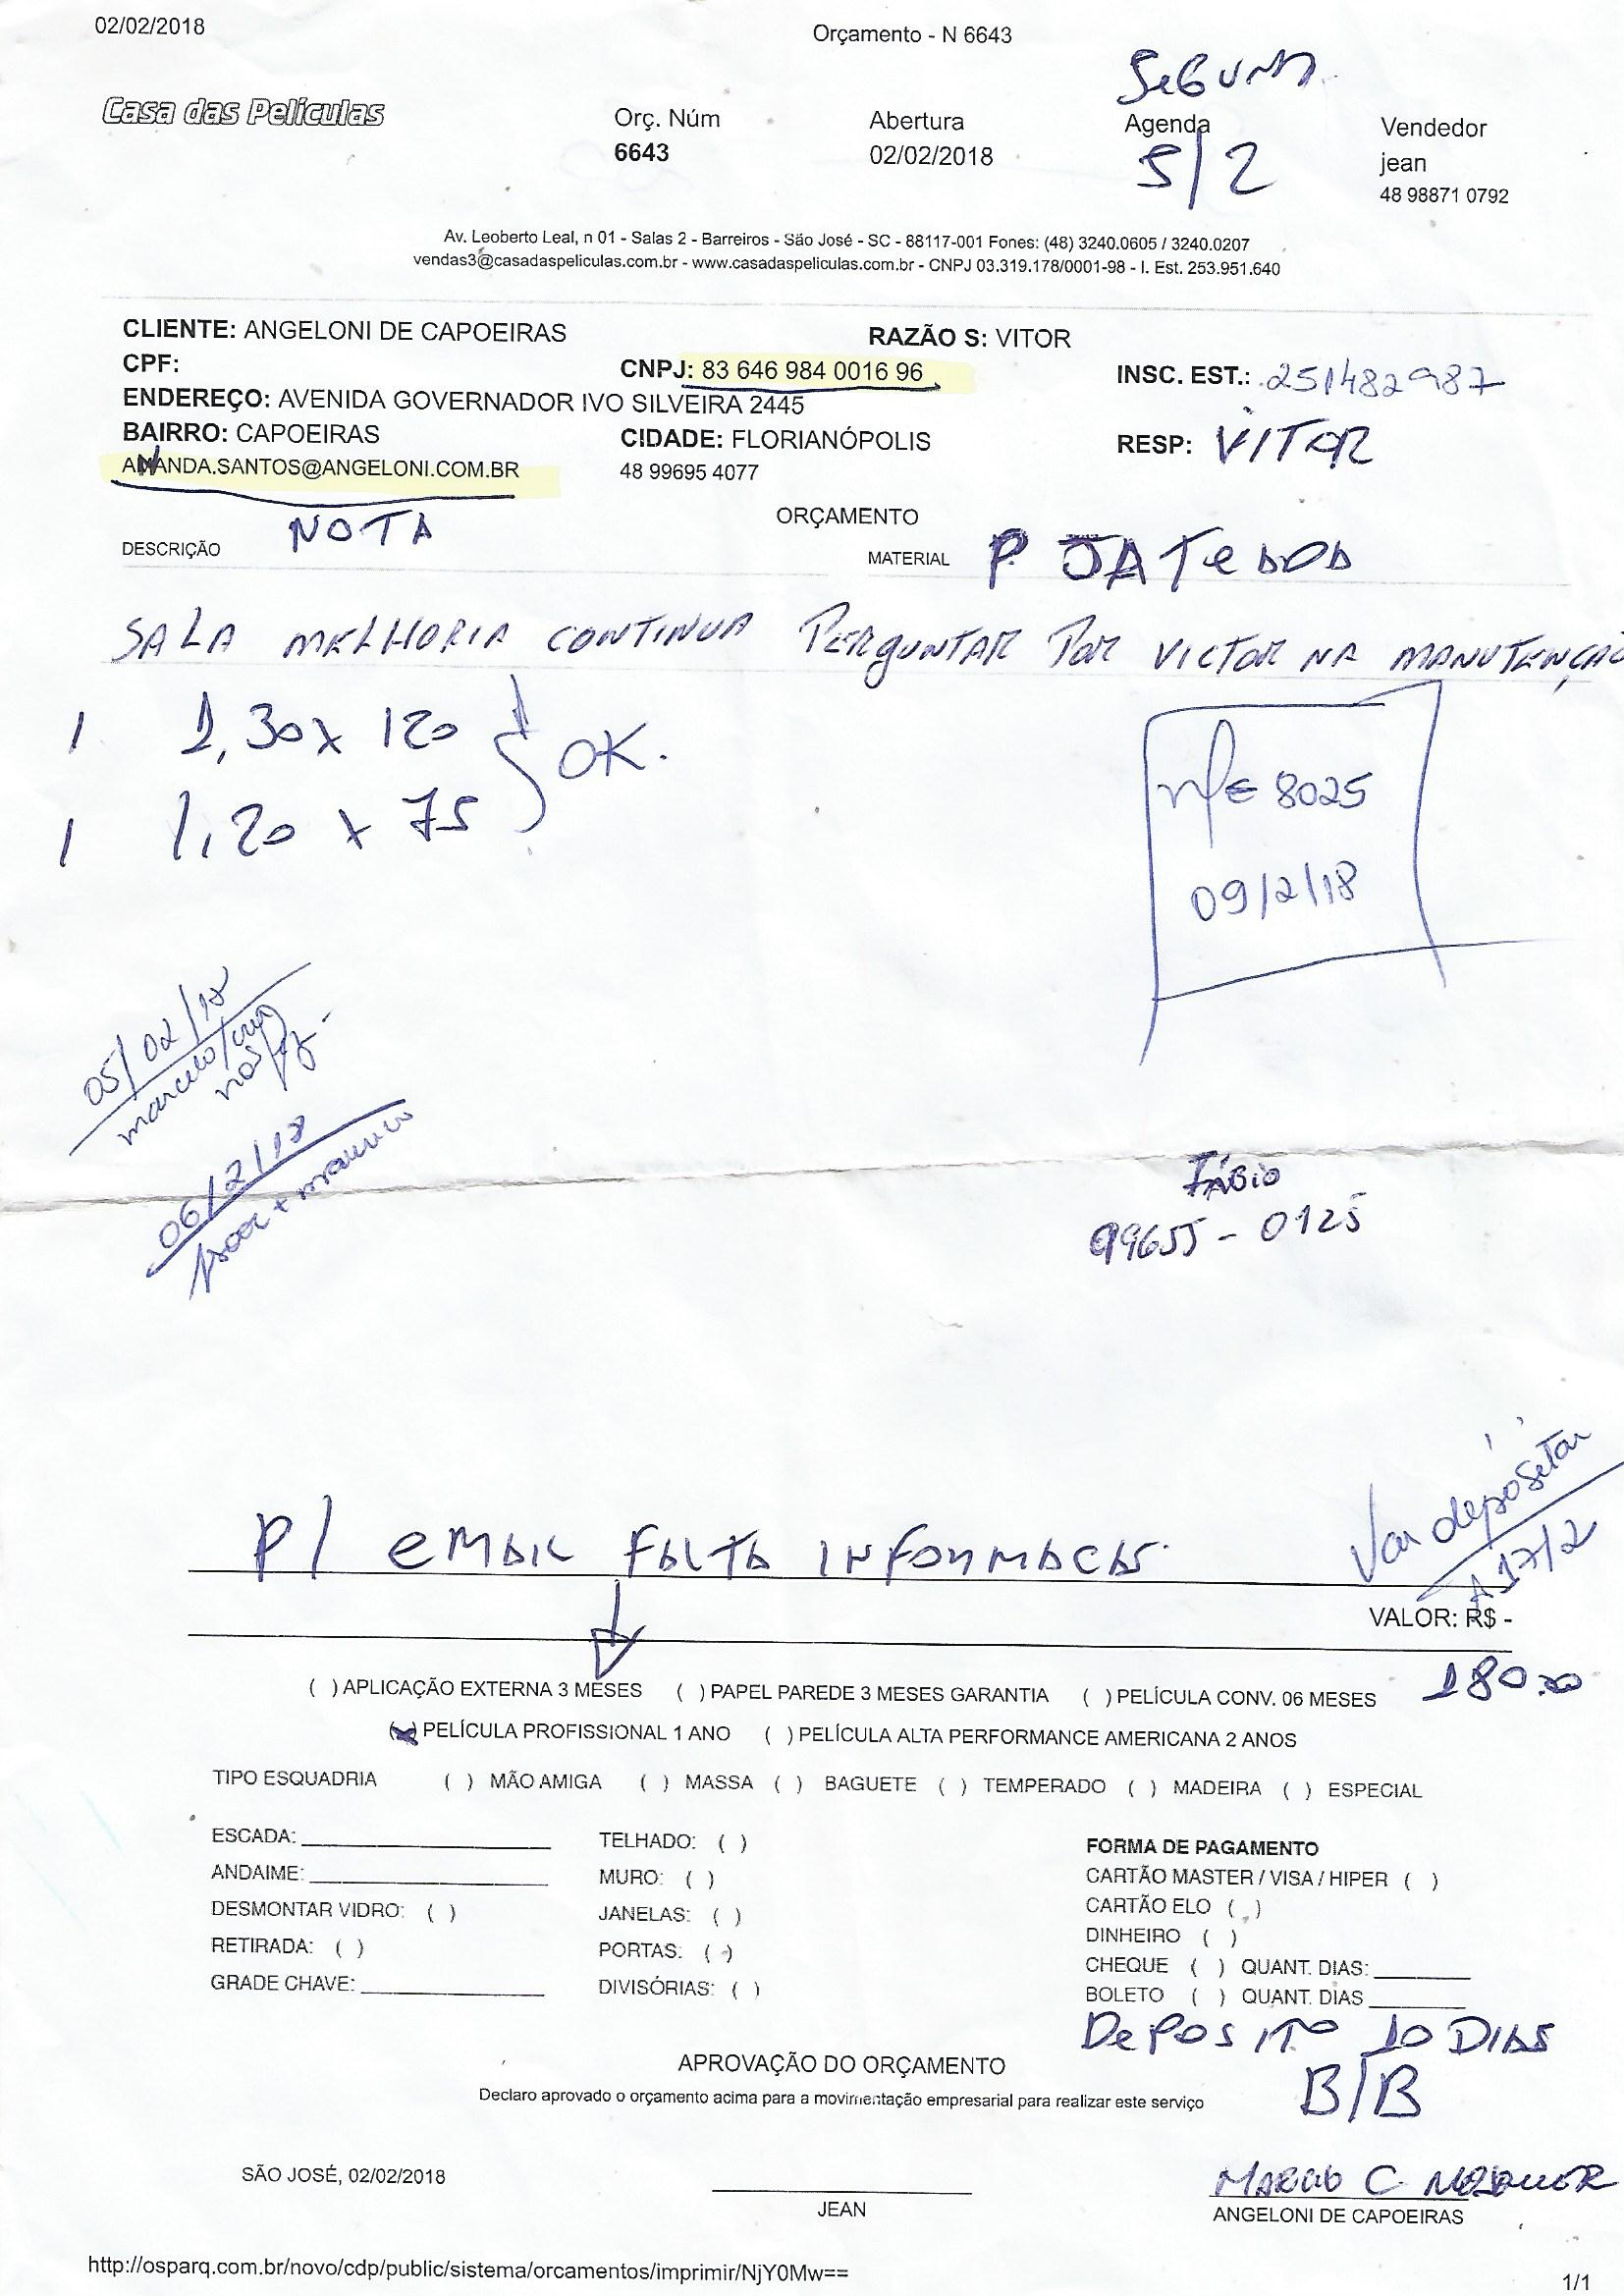 02/02/2018
Orçamento - N 6643
Casa das Películas
Orç. Núm
6643
Abertura
02/02/2018
SeGUNDA
Agenda
5/2
Vendedor
jean
48 98871 0792
Av. Leoberto Leal, n 01 - Salas 2 - Barreiros - São José - SC - 88117-001 Fones: (48) 3240.0605 / 3240.0207
vendas3@casadaspeliculas.com.br - www.casadaspeliculas.com.br - CNPJ 03.319.178/0001-98 - I. Est. 253.951.640
CLIENTE: ANGELONI DE CAPOEIRAS
RAZÃO S: VITOR
CPF:
CNPJ: 83 646 984 0016 96
INSC. EST.: 251482987
ENDEREÇO: AVENIDA GOVERNADOR IVO SILVEIRA 2445
BAIRRO: CAPOEIRAS
CIDADE: FLORIANÓPOLIS
RESP: VITOR
AMANDA.SANTOS@ANGELONI.COM.BR
48 99695 4077
NOTA
ORÇAMENTO
DESCRIÇÃO
MATERIAL P JATeADO
SALA MELHORIA CONTINUA PERGUNTAR POR VICTOR NA MANUTENÇAO
1 1,30 x 120
OK.
1 1,20 x 75
nfe 8025
09/2/18
05/02/18
marcelo/
06/2/18
FÁBiO
99655-0125
P/ eMAIL FALTA INFORMACAS.
Vai depositar
A 17/2
VALOR: R$ -
180.00
( ) APLICAÇÃO EXTERNA 3 MESES ( ) PAPEL PAREDE 3 MESES GARANTIA ( ) PELÍCULA CONV. 06 MESES
(x) PELÍCULA PROFISSIONAL 1 ANO ( ) PELÍCULA ALTA PERFORMANCE AMERICANA 2 ANOS
TIPO ESQUADRIA ( ) MÃO AMIGA ( ) MASSA ( ) BAGUETE ( ) TEMPERADO ( ) MADEIRA ( ) ESPECIAL
ESCADA:
ANDAIME:
DESMONTAR VIDRO: ( )
RETIRADA: ( )
GRADE CHAVE:
TELHADO: ( )
MURO: ( )
JANELAS: ( )
PORTAS: ( )
DIVISÓRIAS: ( )
FORMA DE PAGAMENTO
CARTÃO MASTER / VISA / HIPER ( )
CARTÃO ELO ( )
DINHEIRO ( )
CHEQUE ( ) QUANT. DIAS:
BOLETO ( ) QUANT. DIAS
DePOSITO 10 DIAS
B/B
APROVAÇÃO DO ORÇAMENTO
Declaro aprovado o orçamento acima para a movimentação empresarial para realizar este serviço
SÃO JOSÉ, 02/02/2018
JEAN
C.
ANGELONI DE CAPOEIRAS
http://osparq.com.br/novo/cdp/public/sistema/orcamentos/imprimir/NjY0Mw==
1/1